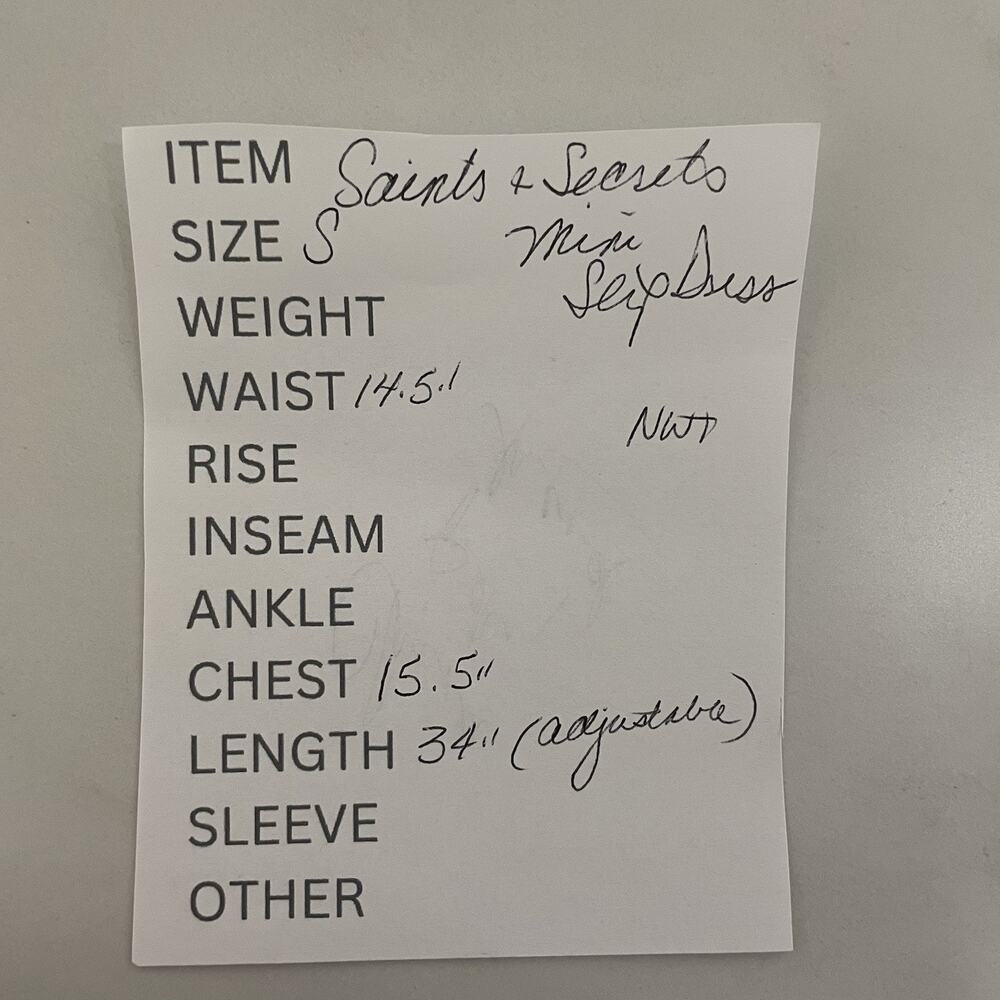 ITEM Saints & Secrets
SIZE S Mini
Slip Dress
WEIGHT
WAIST 14.5"
NWT
RISE
INSEAM
ANKLE
CHEST 15.5"
LENGTH 34" (adjustable)
SLEEVE
OTHER